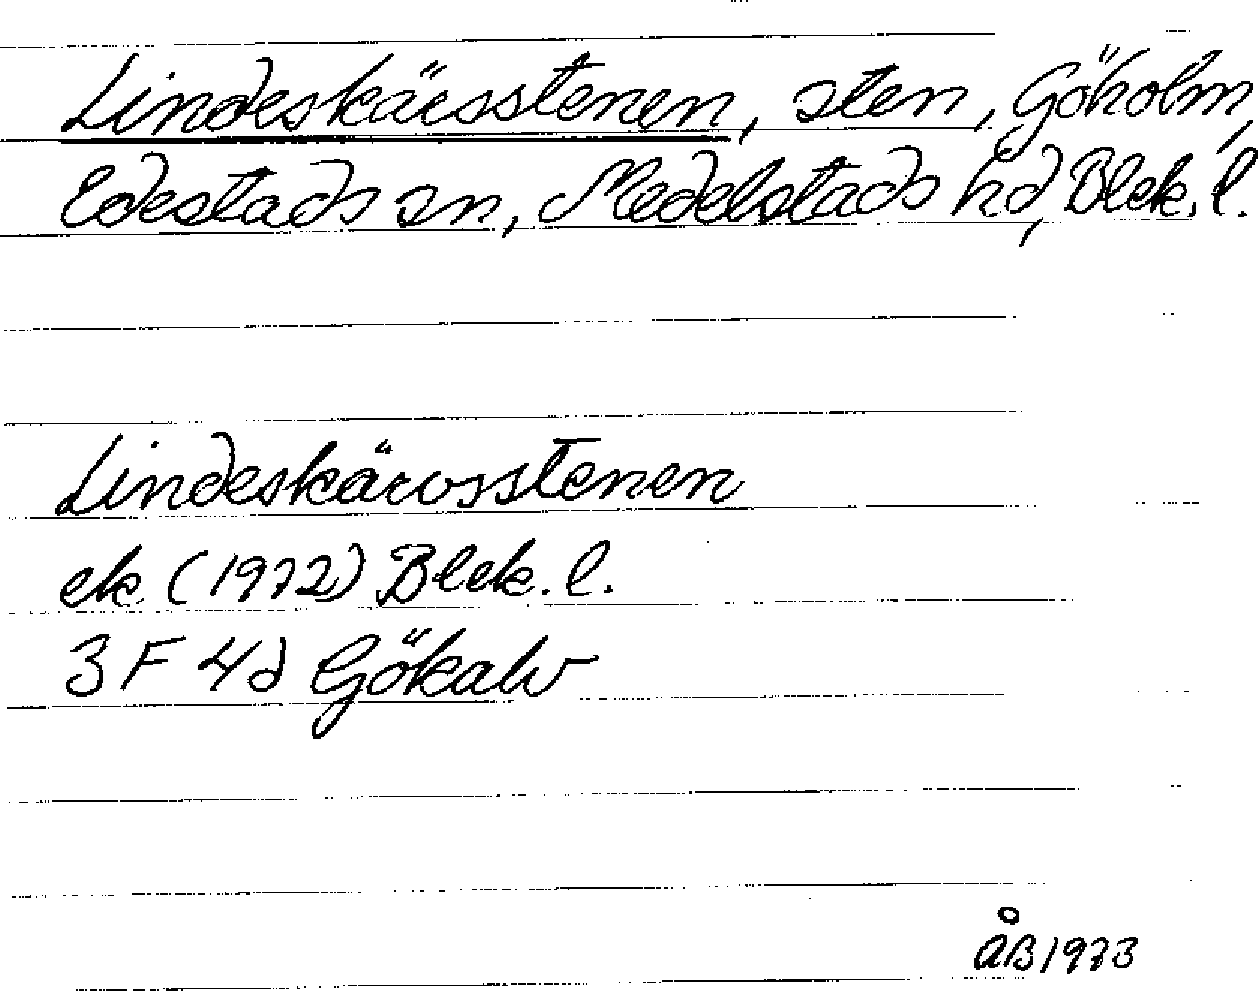 Lindeskärsstenen, sten, Göholm,
Edestads sn, Medelstads hd, Blek. l.
Lindeskärsstenen
ek (1972) Blek. l.
3 F 4d Gökalv
ÅB 1973